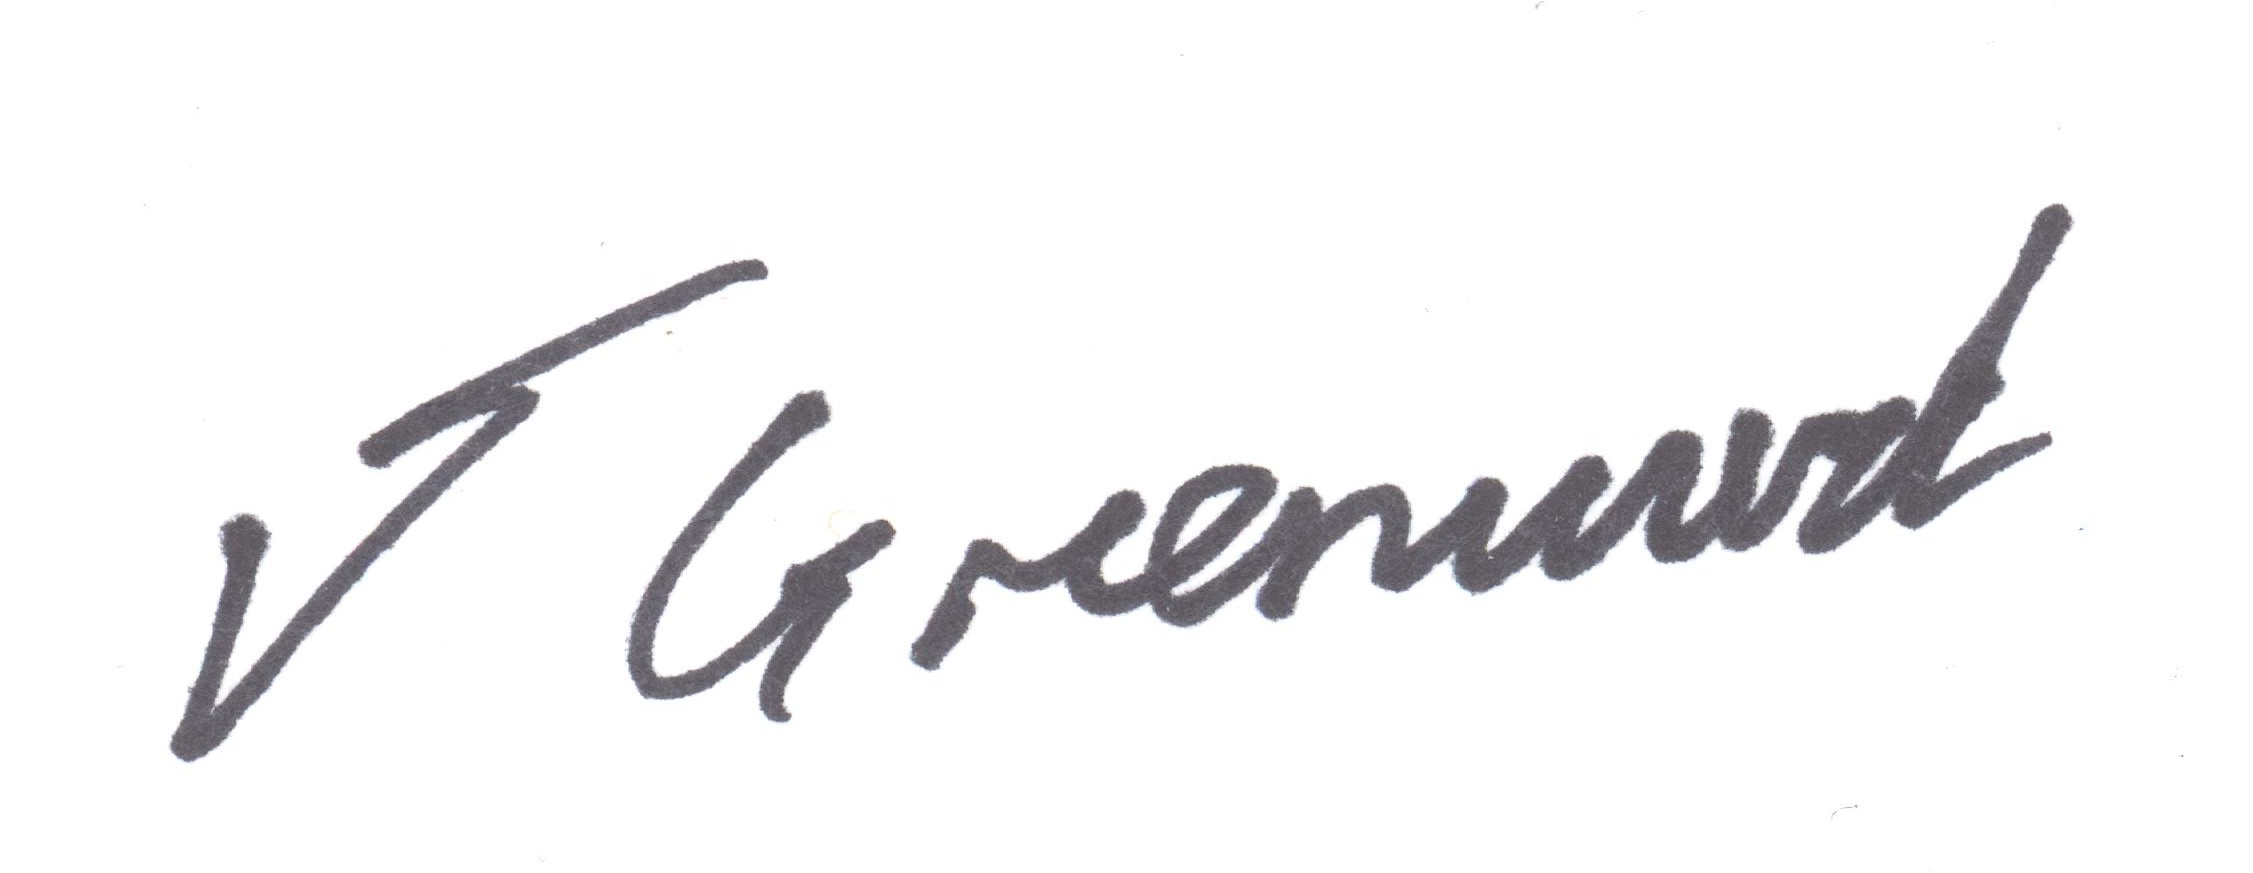 J Greenwood